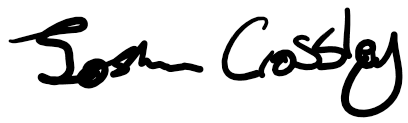 Joshua Crossley